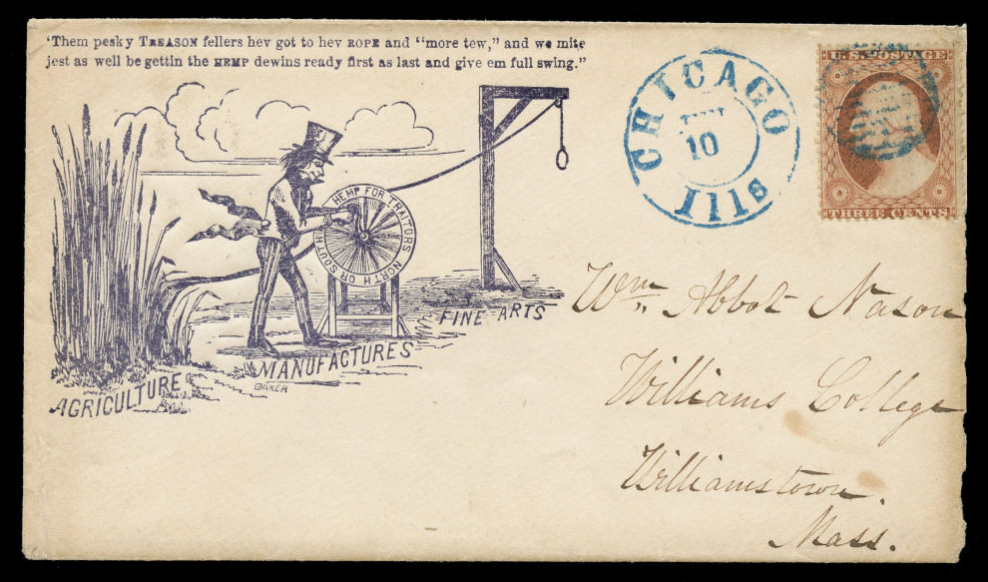 ‘Them pesky TREASON fellers hev got to hev ROPE and “more tew,” and we mite
jest as well be gettin the HEMP dewins ready first as last and give em full swing.”
CHICAGO
JUN
10
Ills
U.S. POSTAGE
THREE CENTS
HEMP FOR TRAITORS NORTH OR SOUTH
FINE ARTS
MANUFACTURES
BAKER
AGRICULTURE
Wm. Abbot Nason
Williams College
Williamstown.
Mass.